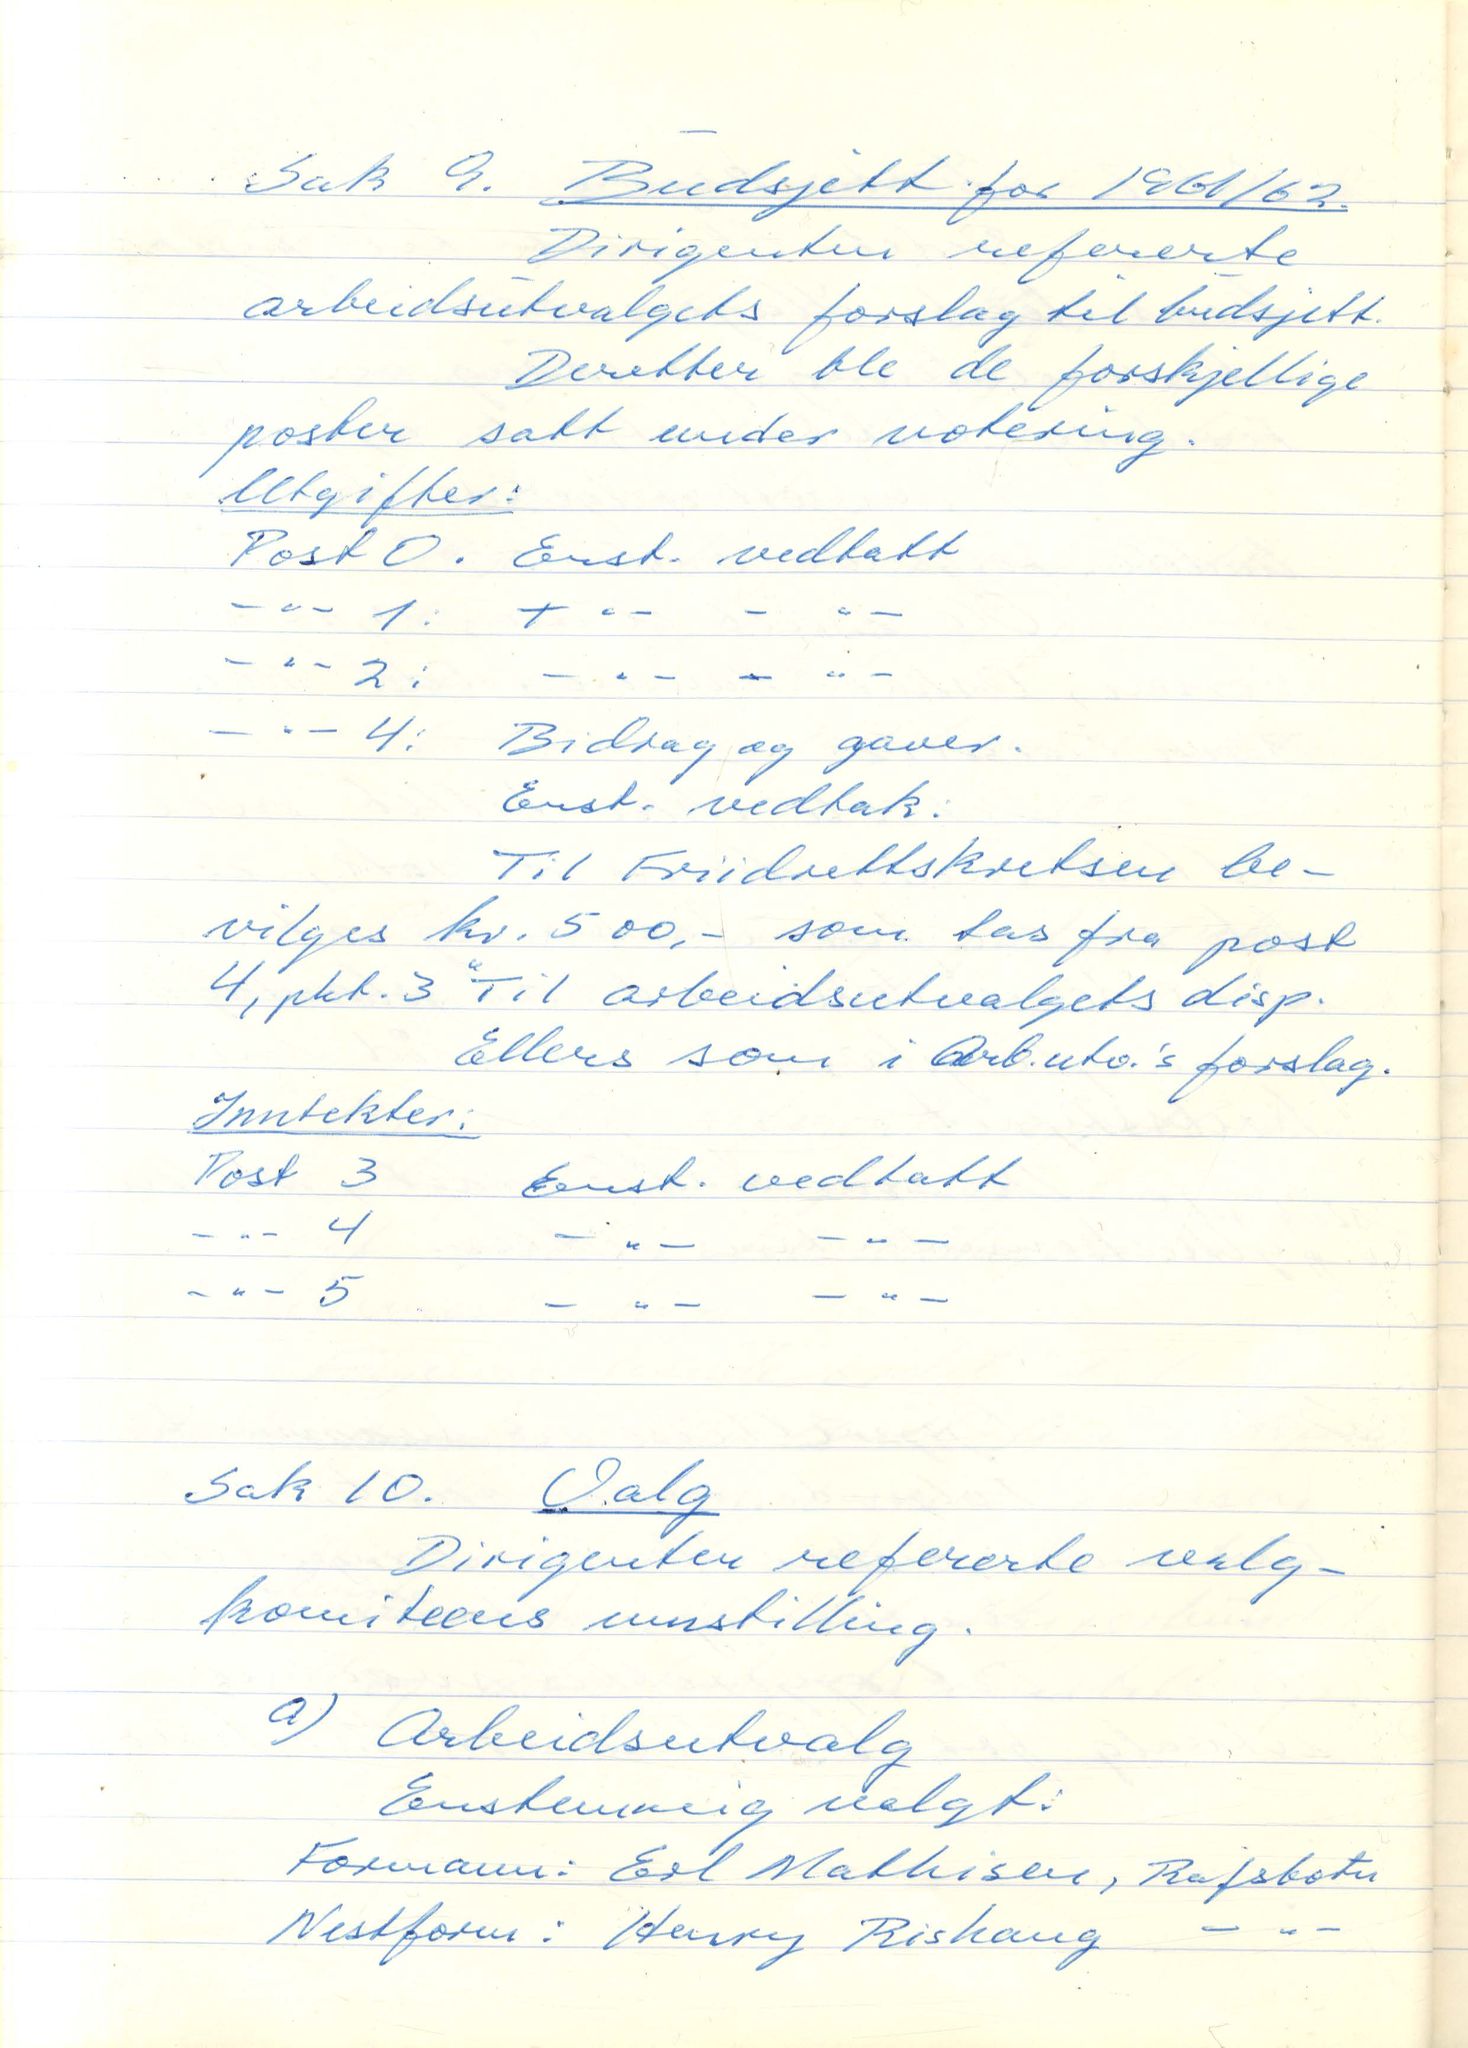 Sak 9. Budsjett for 1961/62.
Dirigenten refererte
arbeidsutvalgets forslag til budsjett.
Deretter ble de forskjellige
poster satt under votering.
Utgifter:
Post 0. Enst. vedtatt
- " - 1: - " - - " -
- " - 2: - " - - " -
- " - 4: Bidrag og gaver.
Enst. vedtak:
Til Friidrettskretsen be-
vilges kr. 500,- som tas fra post
4, pkt. 3 "Til arbeidsutvalgets disp.
Ellers som i Arb.utv.'s forslag.
Inntekter:
Post 3 Enst. vedtatt
- " - 4 - " - - " -
- " - 5 - " - - " -
Sak 10. Valg
Dirigenten refererte valg-
komiteens innstilling.
a) Arbeidsutvalg
Enstemmig valgt:
Formann: Erl Mathisen, Rafsbotn
Nestform: Henry Rishaug - " -